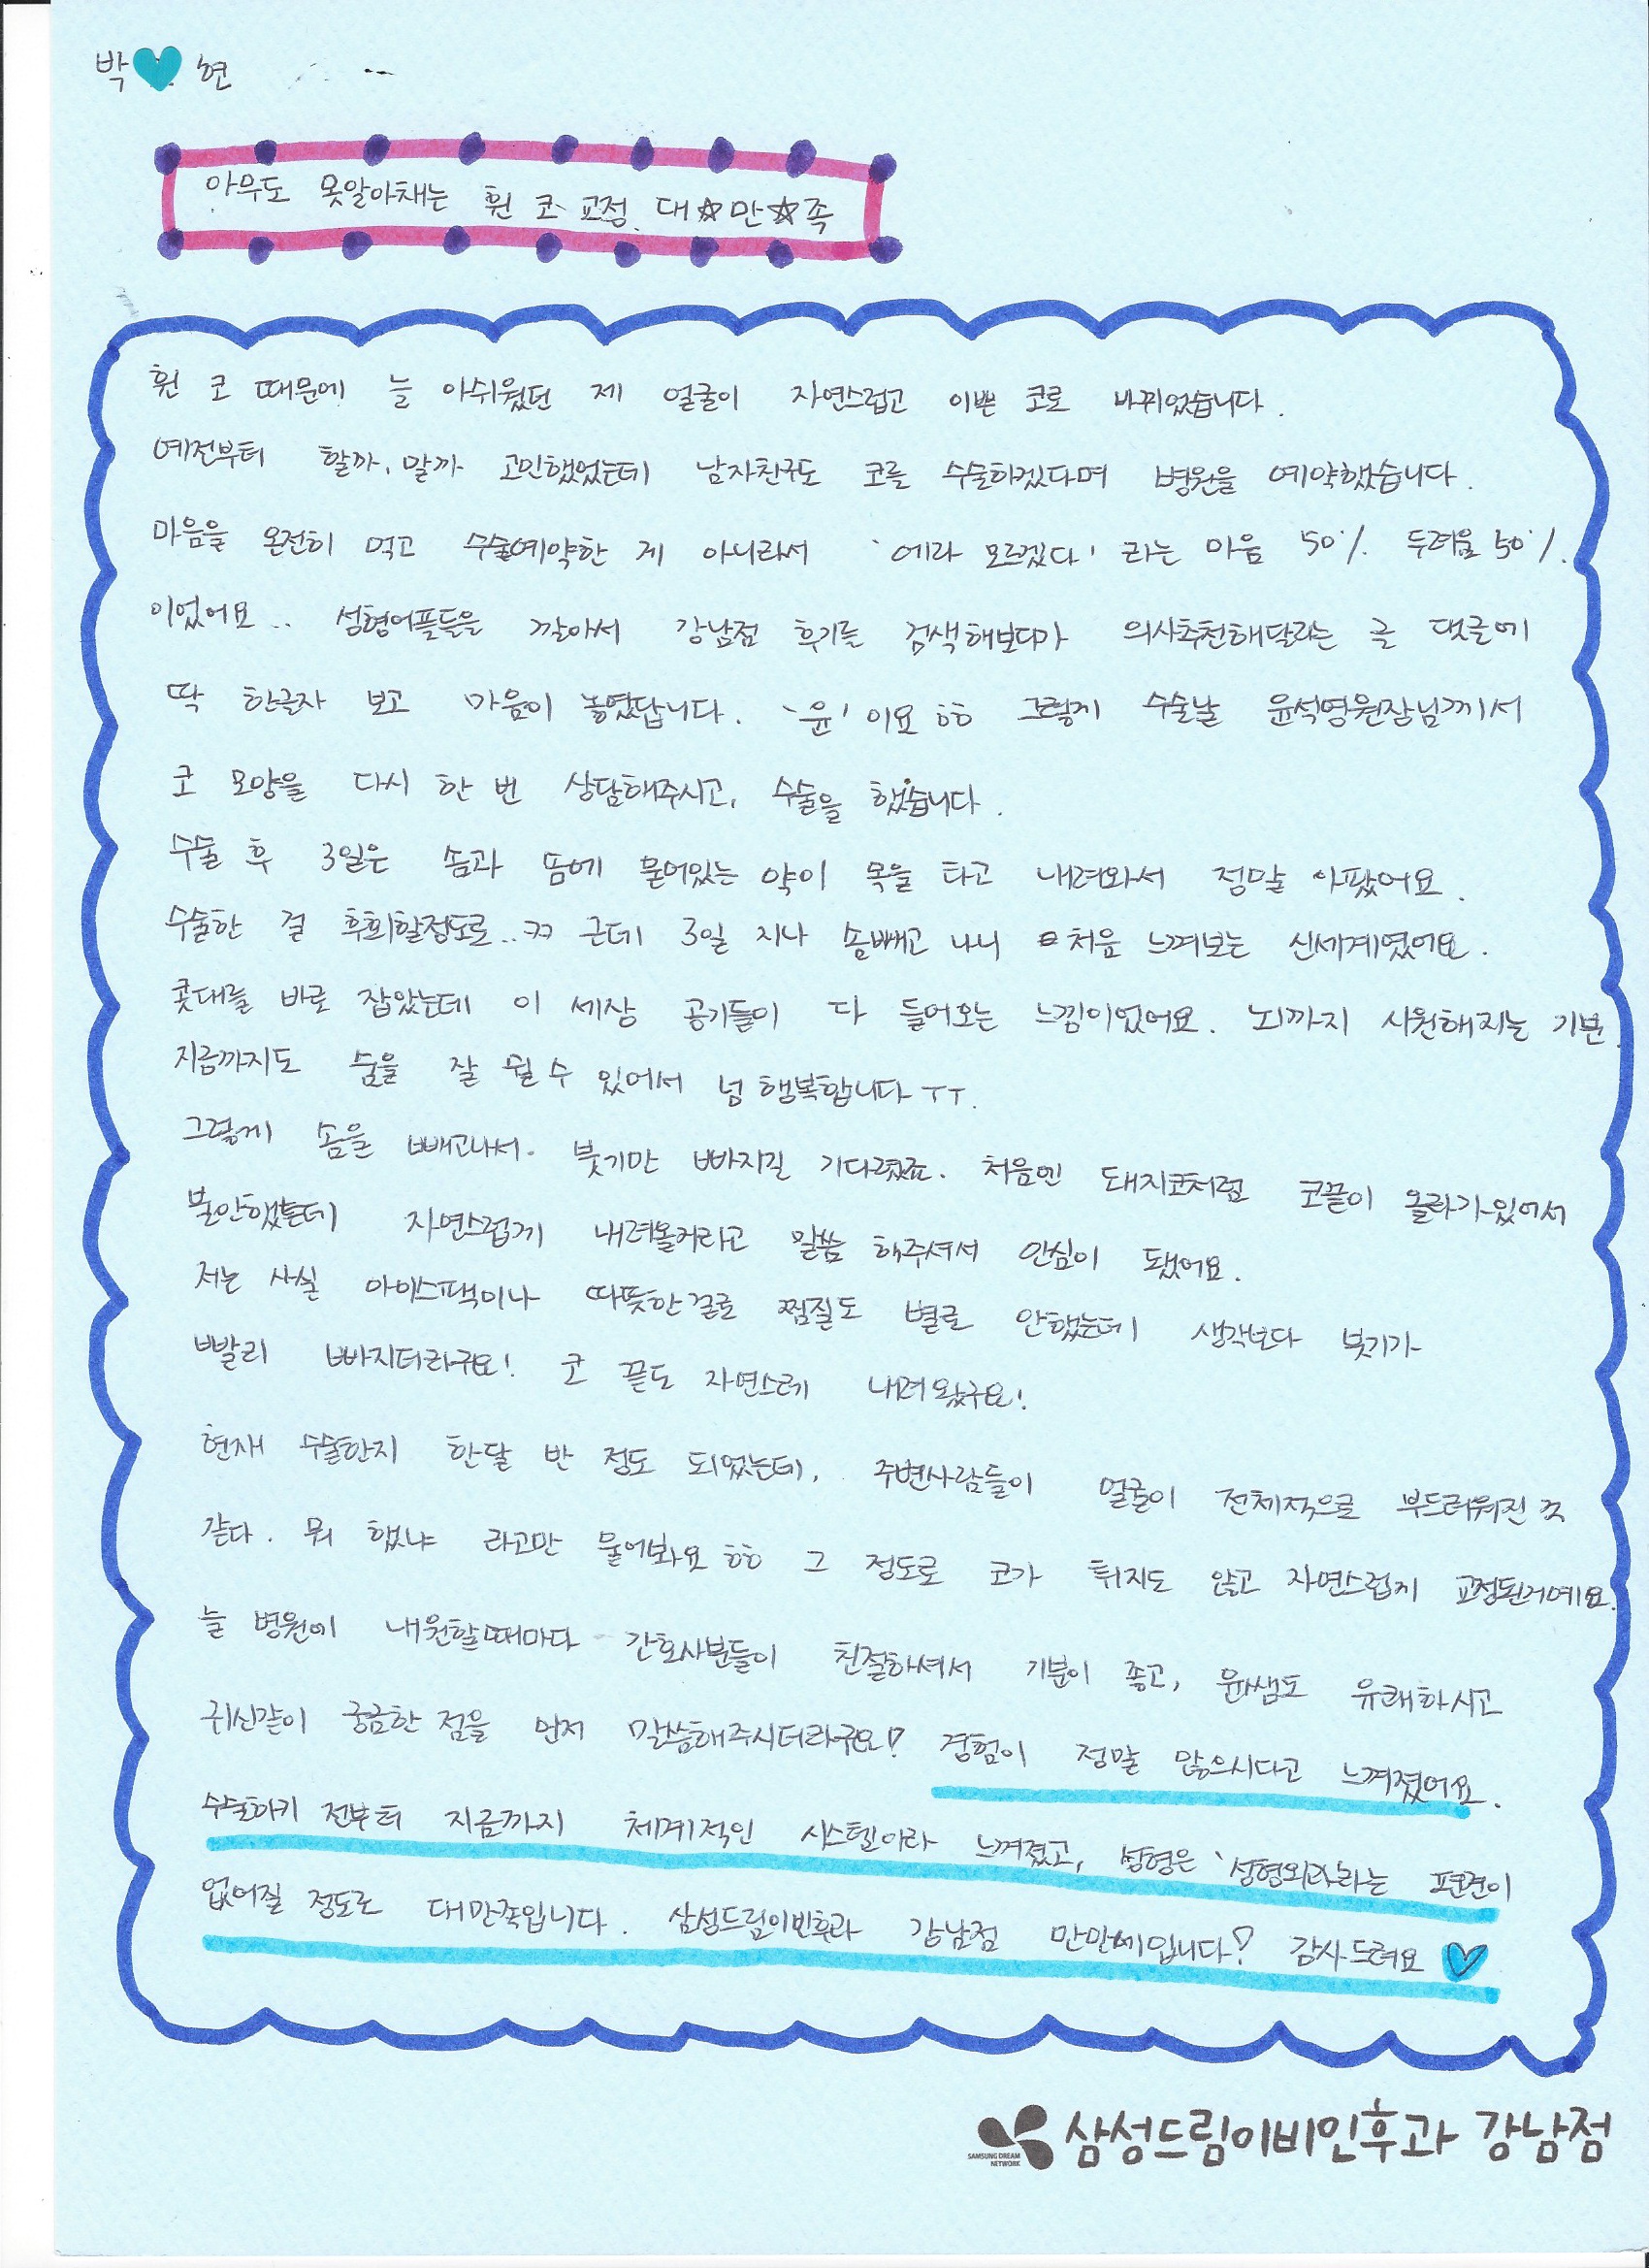 박♥현
아무도 못알아채는 휜 코 교정 대☆만☆족
휜 코 때문에 늘 아쉬웠던 제 얼굴이 자연스럽고 이쁜 코로 바뀌었습니다.
예전부터 할까, 말까 고민했었는데 남자친구도 코를 수술하겠다며 병원을 예약했습니다.
마음을 온전히 먹고 수술예약한 게 아니라서 '에라 모르겠다' 라는 마음 50% 두려움 50%
이었어요.. 성형어플들을 깔아서 강남점 후기를 검색해보다가 의사추천해달라는 글 댓글에
딱 한글자 보고 마음이 놓였답니다. '윤' 이요ㅎㅎ 그렇게 수술날 윤석영원장님께서
코 모양을 다시 한 번 상담해주시고, 수술을 했습니다.
수술 후 3일은 솜과 뜸에 묻어있는 약이 목을 타고 내려와서 정말 아팠어요.
수술한 걸 후회할정도로..ㅋㅋ 근데 3일 지나 솜빼고 나니 처음 느껴보는 신세계였어요.
콧대를 바로 잡았는데 이 세상 공기들이 다 들어오는 느낌이었어요. 뇌까지 시원해지는 기분.
지금까지도 숨을 잘 쉴 수 있어서 넘 행복합니다ㅜㅜ.
그렇게 솜을 빼고나서. 붓기만 빠지길 기다렸죠. 처음엔 돼지코처럼 코끝이 올라가있어서
불안했는데 자연스럽게 내려올거라고 말씀 해주셔서 안심이 됐어요.
저는 사실 아이스팩이나 따뜻한걸로 찜질도 별로 안했는데 생각보다 붓기가
빨리 빠지더라구요! 코 끝도 자연스레 내려왔구요!
현재 수술한지 한달 반 정도 되었는데, 주변사람들이 얼굴이 전체적으로 부드러워진 것
같다. 뭐 했냐 라고만 물어봐요ㅎㅎ 그 정도로 코가 튀지도 않고 자연스럽게 교정된거예요.
늘 병원에 내원할때마다 간호사분들이 친절하셔서 기분이 좋고, 윤쌤도 유쾌하시고
귀신같이 궁금한 점을 먼저 말씀해주시더라구요! 경험이 정말 많으시다고 느껴졌어요.
수술하기 전부터 지금까지 체계적인 시스템이라 느껴졌고, 성형은 '성형외과'라는 편견이
없어질 정도로 대만족입니다. 삼성드림이비인후과 강남점 만만세입니다! 감사드려요♡
SAMSUNG DREAM NETWORK 삼성드림이비인후과 강남점